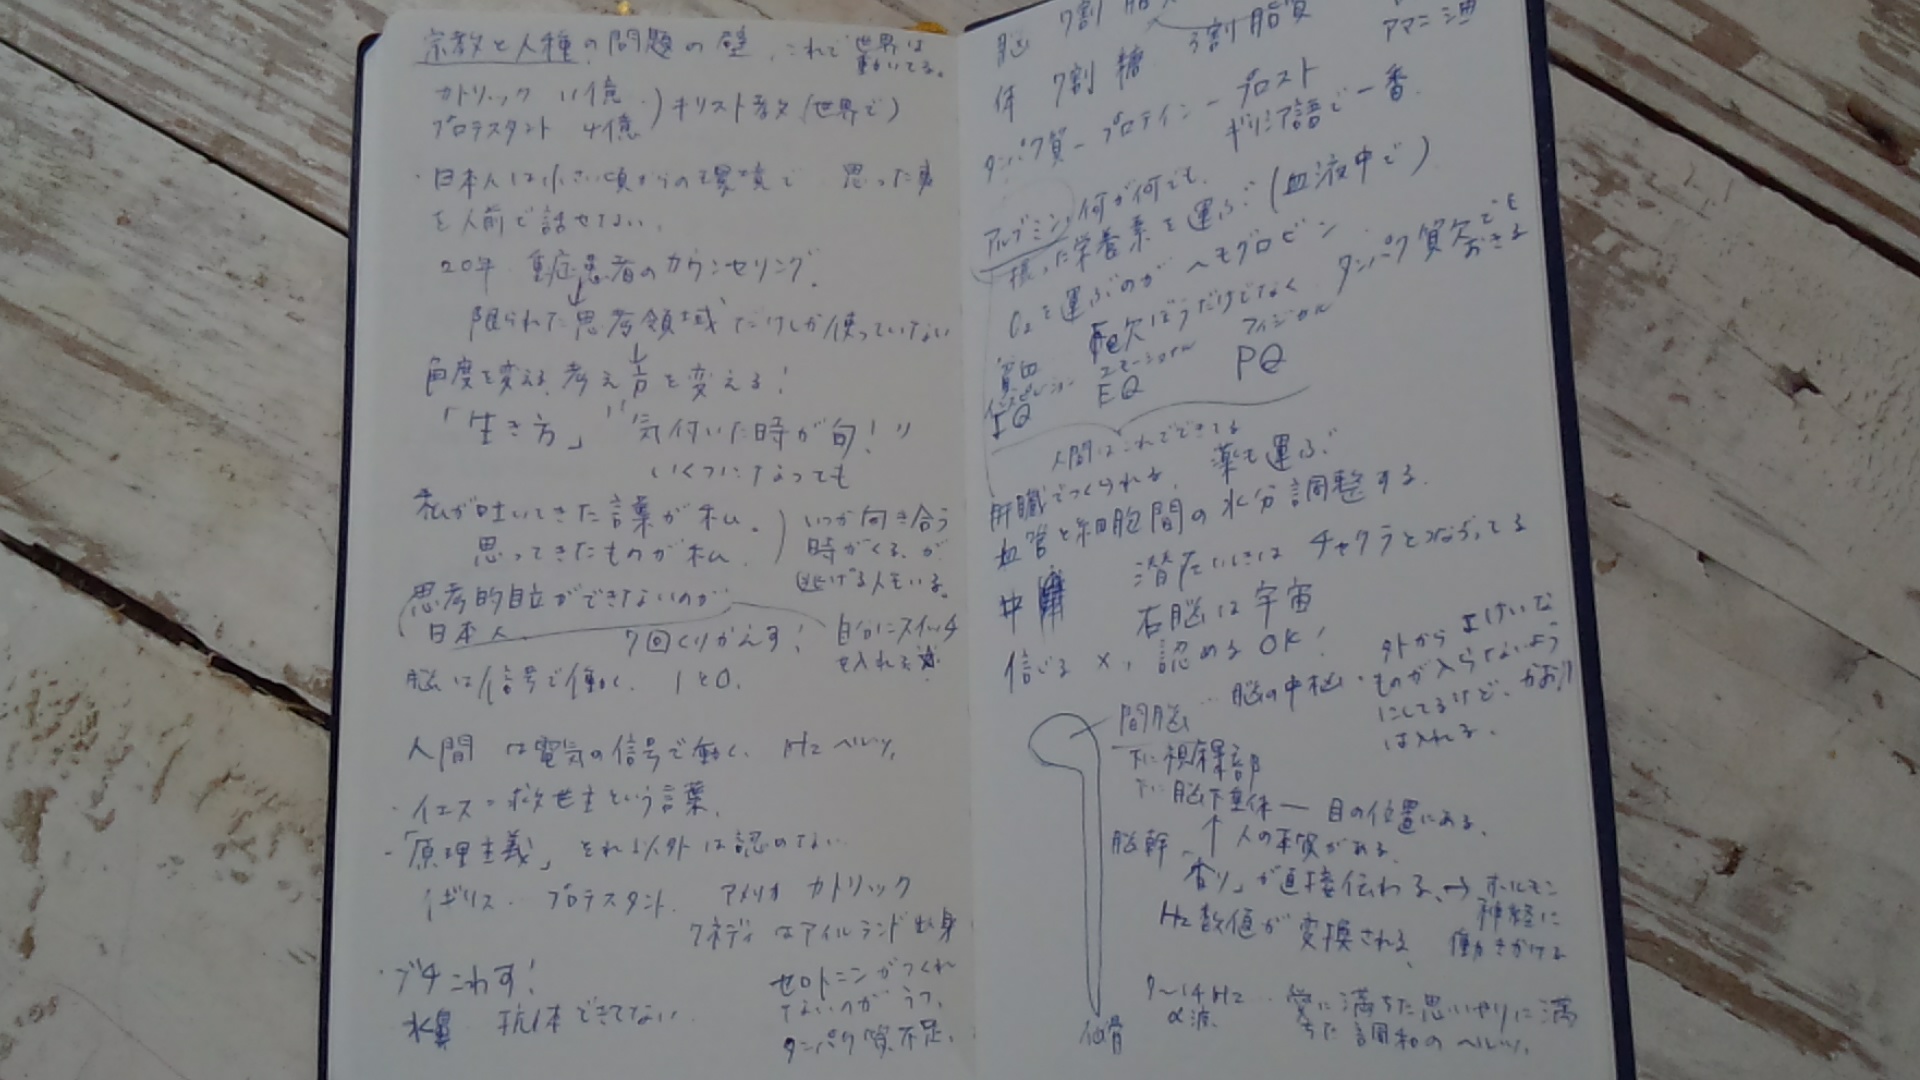 宗教と人種の問題の壁、これで世界は
動いてる。
カトリック 11億
プロテスタント 4億
キリスト教(世界で)
・日本人は小さい頃からの環境で 思った事
を人前で話せてない。
20年 重症患者のカウンセリング。
限られた思考領域だけしか使っていない
角度を変える、考え方を変える!
「生き方」"気付いた時が旬!"
いくつになっても
私が吐いてきた言葉が私。
思ってきたものが私
いつか向き合う
時がくる、が
逃げる人もいる。
思考的自立ができないのが
日本人。
7回くりかえす!
自分にスイッチ
を入れる
脳は信号で働く、1と0.
人間は電気の信号で働く、Hz ヘルツ。
・イエス=救世主という言葉。
・「原理主義」それ以外は認めない
イギリス・プロテスタント. アメリカ カトリック
ケネディはアイルランド出身
・ブチこわす!
水鼻 抗体できてない
セロトニンがつくれ
ないのがうつ、
タンパク質不足、
脳 7割 脂
3割脂質
アマニ油
体 7割 糖
タンパク質-プロテイン-プロスト
ギリシア語で一番.
アルブミン, 何が何でも、
摂った栄養素を運ぶ(血液中で)
O2を運ぶのがヘモグロビン
貧血 Fe欠ぼうだけでなく タンパク質欠でも
おきる
エモーショナル
フィジカル
IQ EQ PQ
人間はこれでできてる
肝臓でつくられる 薬も運ぶ
血管と細胞間の水分調整する.
潜在いしきは チャクラとつながってる
右脳は宇宙
信じる ×, 認める OK!
間脳…脳の中枢・
外からよけいな
ものが入らないよう
にしてるけど、かおり
は入れる。
下に視床下部
下に脳下垂体 ― 目の位置にある、
脳幹
↑人の本質がある
香り」が直接伝わる、→ ホルモン
神経に
働きかける
Hz数値が変換される、
7~14Hz…愛に満ちた思いやりに満
α波 ちた調和のヘルツ。
仙骨